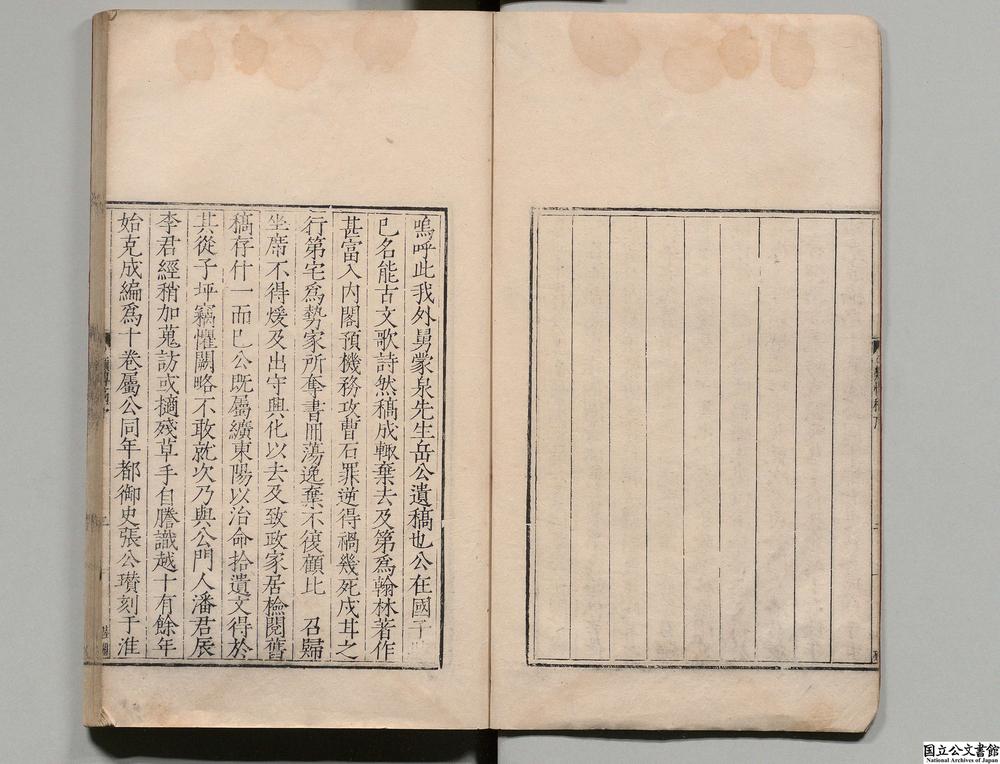 嗚呼此我外舅蒙泉先生岳公遺稿也公在國子
已名能古文歌詩然稿成輙棄去及第爲翰林著作
甚富入內閣預機務攻曹石罪逆得禍幾死戍其之
行第宅爲勢家所奪書冊蕩逸棄不復顧比 召歸
坐席不得煖及出守興化以去及致政家居檢閱舊
稿存什一而已公既屬纊東陽以治命拾遺文得於
其從子坪竊懼闕略不敢就次乃與公門人潘君辰
李君經稍加蒐訪或摘殘草手自謄識越十有餘年
始克成編爲十卷屬公同年都御史張公瓚刻于淮
国立公文書館
National Archives of Japan